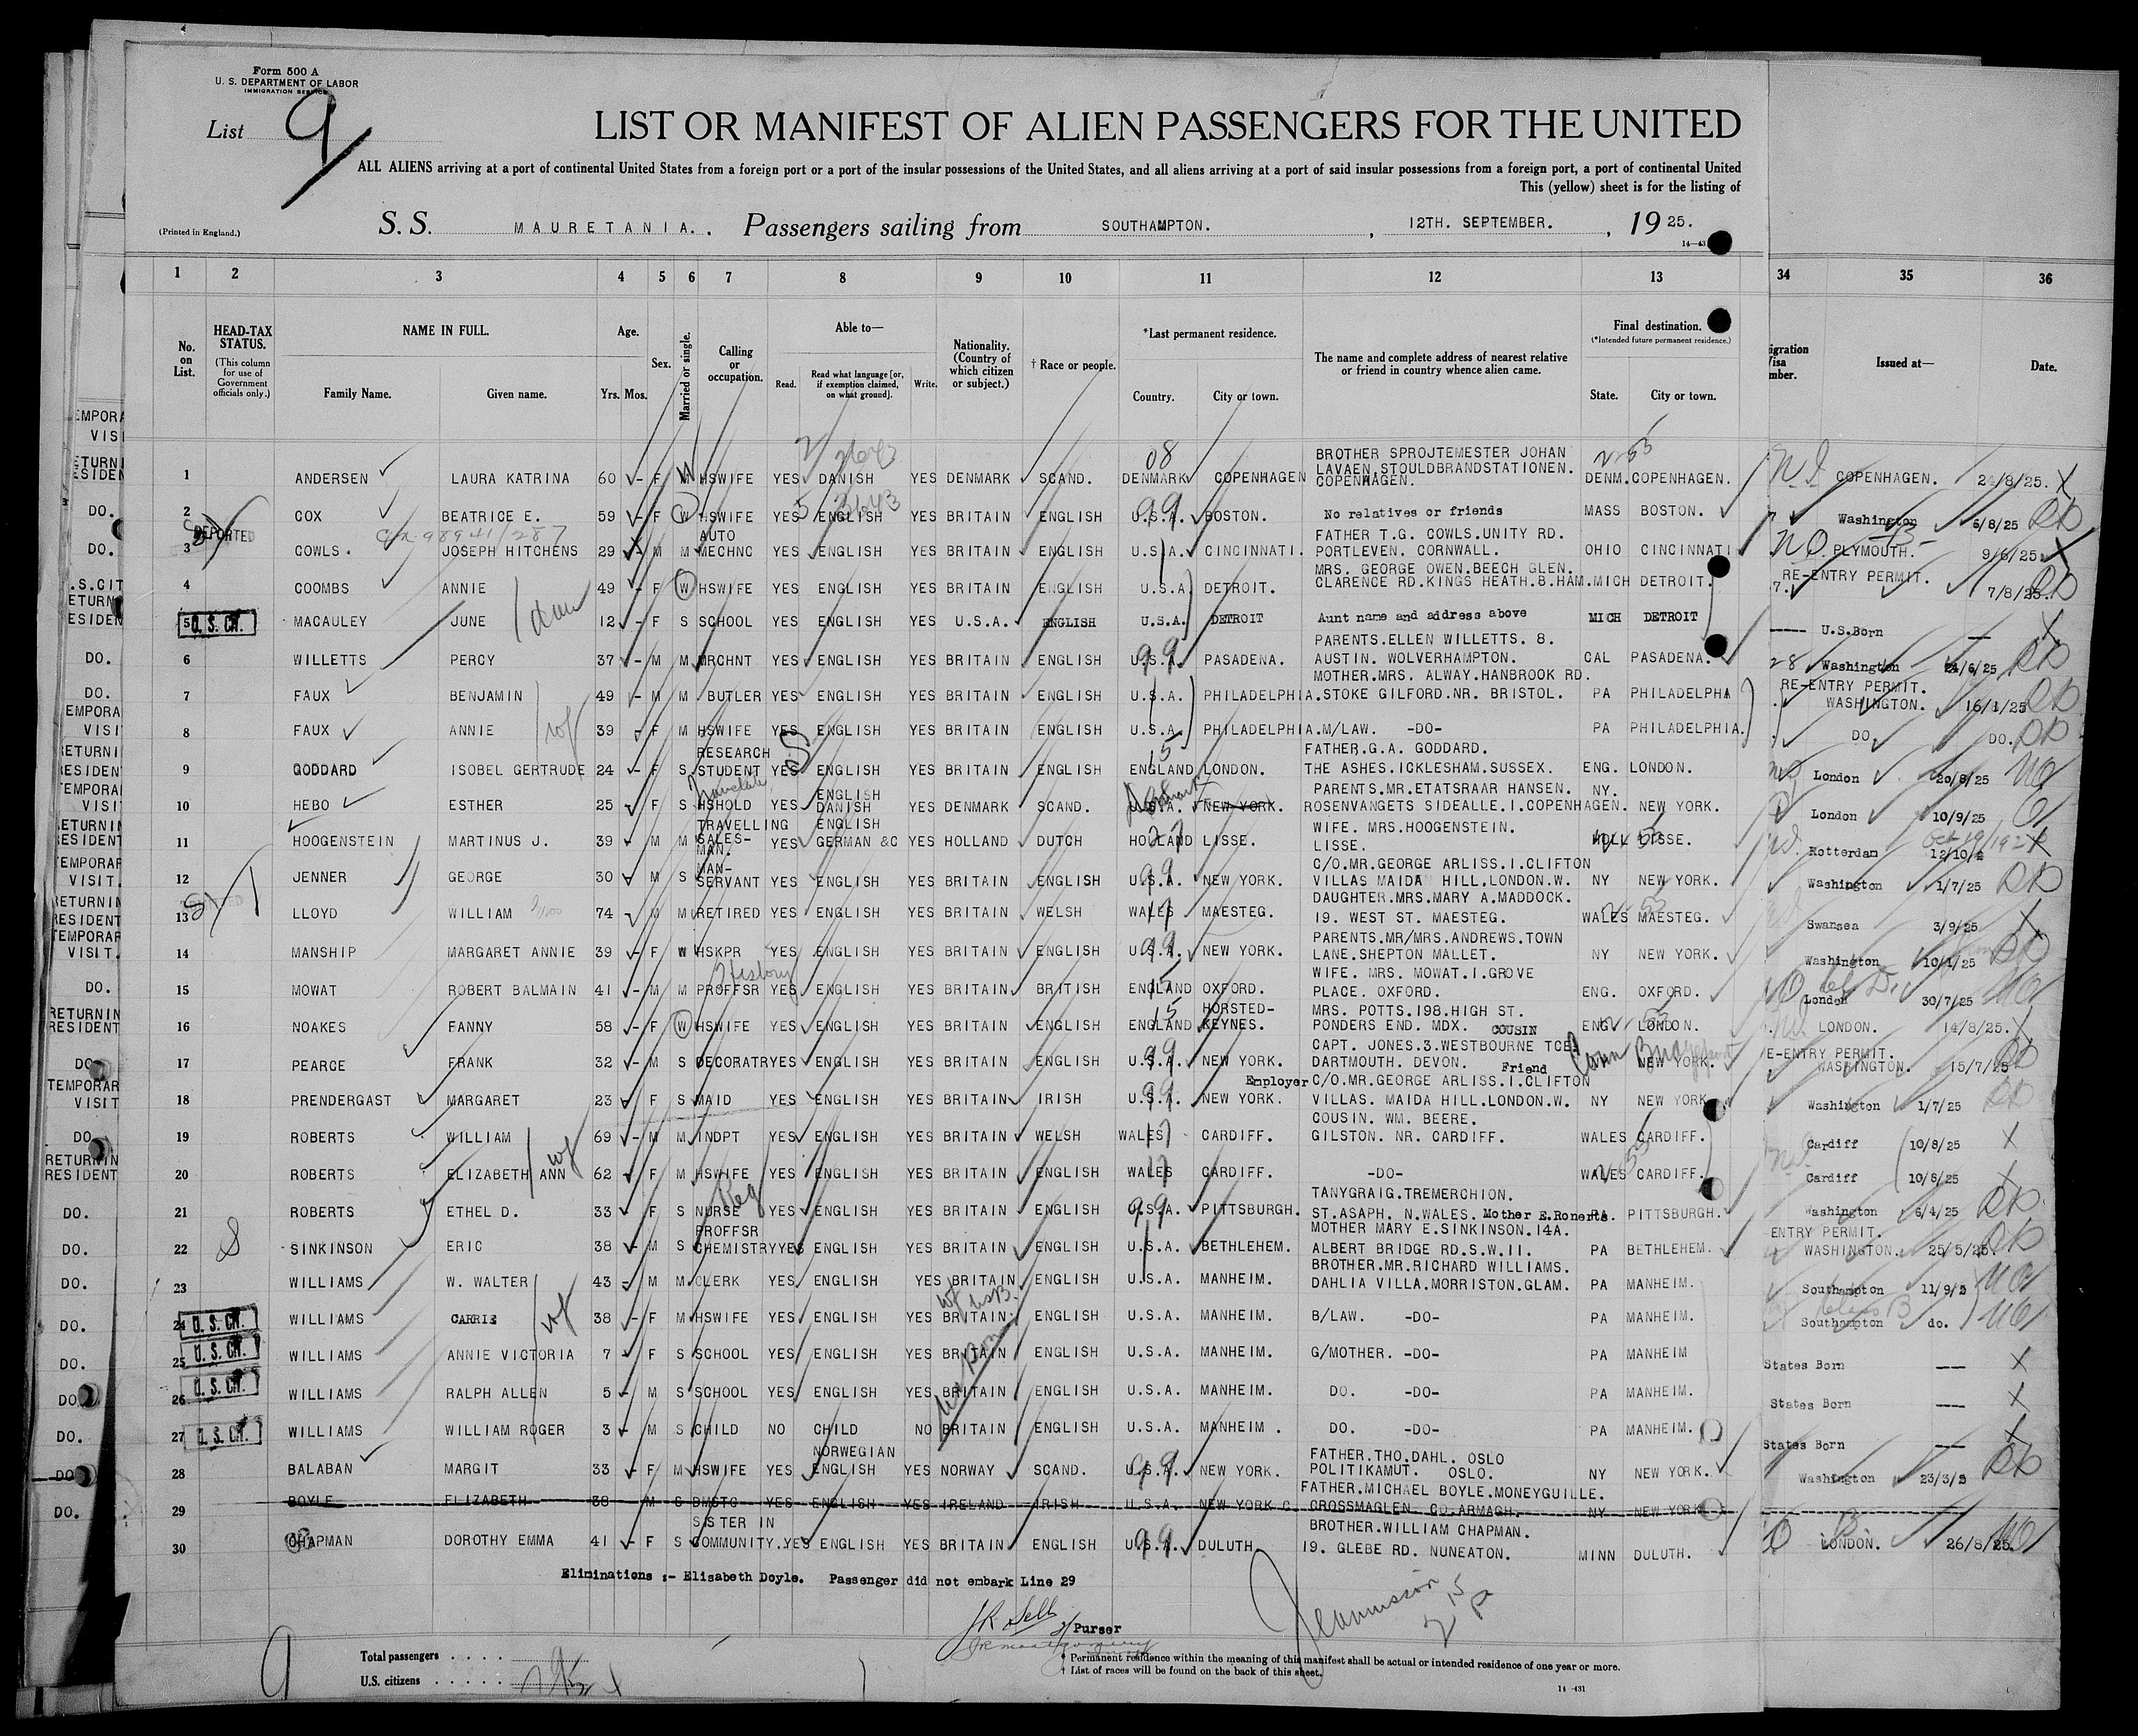 Form 500 A
U. S. DEPARTMENT OF LABOR
IMMIGRATION SERVICE
List 9
LIST OR MANIFEST OF ALIEN PASSENGERS FOR THE UNITED
ALL ALIENS arriving at a port of continental United States from a foreign port or a port of the insular possessions of the United States, and all aliens arriving at a port of said insular possessions from a foreign port, a port of continental United
This (yellow) sheet is for the listing of
(Printed in England.)
S. S. MAURETANIA. Passengers sailing from SOUTHAMPTON. , 12TH. SEPTEMBER. , 19 25.
1 2 3 4 5 6 7 8 9 10 11 12 13 34 35 36
No. on List.
HEAD-TAX STATUS.
(This column for use of Government officials only.)
NAME IN FULL.
Family Name. Given name.
Age.
Yrs. Mos.
Sex.
Married or single.
Calling or occupation.
Able to—
Read. Read what language [or, if exemption claimed, on what ground]. Write.
Nationality. (Country of which citizen or subject.)
† Race or people.
*Last permanent residence.
Country. City or town.
The name and complete address of nearest relative or friend in country whence alien came.
Final destination.
(*Intended future permanent residence.)
State. City or town.
Issued at—
Date.
BROTHER SPROJTEMESTER JOHAN
1 ANDERSEN LAURA KATRINA 60 - F M HSWIFE YES DANISH YES DENMARK SCAND. DENMARK COPENHAGEN LAVAEN.STOULDBRANDSTATIONEN. COPENHAGEN. DENM. COPENHAGEN. COPENHAGEN. 24/8/25.
2 COX BEATRICE E. 59 - F W HSWIFE YES ENGLISH YES BRITAIN ENGLISH U.S.A. BOSTON. No relatives or friends MASS BOSTON. Washington 6/8/25
AUTO FATHER T.G. COWLS.UNITY RD.
3 COWLS. JOSEPH HITCHENS 29 - M M MECHNC YES ENGLISH YES BRITAIN ENGLISH U.S.A. CINCINNATI. PORTLEVEN. CORNWALL. OHIO CINCINNATI PLYMOUTH. 9/6/25.
MRS. GEORGE OWEN.BEECH GLEN.
4 COOMBS ANNIE 49 - F W HSWIFE YES ENGLISH YES BRITAIN ENGLISH U.S.A DETROIT. CLARENCE RD.KINGS HEATH.B.HAM. MICH DETROIT. RE-ENTRY PERMIT. 7/8/25.
5 U. S. CIT. MACAULEY JUNE 12 - F S SCHOOL YES ENGLISH YES U.S.A. ENGLISH U.S.A. DETROIT Aunt name and address above MICH DETROIT U.S.Born
PARENTS.ELLEN WILLETTS. 8.
6 WILLETTS PERCY 37 - M M MRCHNT YES ENGLISH YES BRITAIN ENGLISH U.S.A. PASADENA. AUSTIN. WOLVERHAMPTON. CAL PASADENA. Washington 24/6/25
MOTHER.MRS. ALWAY.HANBROOK RD.
7 FAUX BENJAMIN 49 - M M BUTLER YES ENGLISH YES BRITAIN ENGLISH U.S.A. PHILADELPHIA. STOKE GILFORD.NR. BRISTOL. PA PHILADELPHA RE-ENTRY PERMIT. WASHINGTON. 16/1/25
8 FAUX ANNIE 39 - F M HSWIFE YES ENGLISH YES BRITAIN ENGLISH U.S.A. PHILADELPHIA. M/LAW. -DO- PA PHILADELPHIA. DO. DO.
RESEARCH FATHER.G.A. GODDARD.
9 GODDARD ISOBEL GERTRUDE 24 - F S STUDENT YES ENGLISH YES BRITAIN ENGLISH ENGLAND LONDON. THE ASHES.ICKLESHAM.SUSSEX. ENG. LONDON. London 20/8/25
ENGLISH PARENTS.MR.ETATSRAAR HANSEN. NY.
10 HEBO ESTHER 25 F S HSHOLD YES DANISH YES DENMARK SCAND. U.S.A. NEW YORK. ROSENVANGETS SIDEALLE.I.COPENHAGEN. NEW YORK. London 10/9/25
TRAVELLING ENGLISH WIFE. MRS.HOOGENSTEIN.
11 HOOGENSTEIN MARTINUS J. 39 - M M SALES-MAN. YES GERMAN &C YES HOLLAND DUTCH HOLLAND LISSE. LISSE. HOLL LISSE. Rotterdam
MAN- C/O.MR.GEORGE ARLISS.I.CLIFTON
12 JENNER GEORGE 30 M S SERVANT YES ENGLISH YES BRITAIN ENGLISH U.S.A. NEW YORK. VILLAS MAIDA HILL.LONDON.W. NY NEW YORK. Washington 1/7/25
DAUGHTER.MRS.MARY A.MADDOCK.
13 LLOYD WILLIAM 74 M M RETIRED YES ENGLISH YES BRITAIN WELSH WALES MAESTEG. 19. WEST ST. MAESTEG. WALES MAESTEG. Swansea 3/9/25
PARENTS.MR/MRS.ANDREWS.TOWN
14 MANSHIP MARGARET ANNIE 39 - F W HSKPR YES ENGLISH YES BRITAIN ENGLISH U.S.A. NEW YORK. LANE.SHEPTON MALLET. NY NEW YORK. Washington 10/1/25
History WIFE. MRS. MOWAT.I.GROVE
15 MOWAT ROBERT BALMAIN 41 - M M PROFFSR YES ENGLISH YES BRITAIN BRITISH ENGLAND OXFORD. PLACE. OXFORD. ENG. OXFORD. London 30/7/25
HORSTED- MRS. POTTS.198.HIGH ST.
16 NOAKES FANNY 58 - F W HSWIFE YES ENGLISH YES BRITAIN ENGLISH ENGLAND KEYNES. PONDERS END. MDX. COUSIN ENG. LONDON. LONDON. 14/8/25.
CAPT. JONES.3.WESTBOURNE TCE
17 PEARCE FRANK 32 - M S DECORATR YES ENGLISH YES BRITAIN ENGLISH U.S.A. NEW YORK. DARTMOUTH. DEVON. Friend Conn Bridgeport NEW YORK. E-ENTRY PERMIT. WASHINGTON. 15/7/25
Employer C/O.MR.GEORGE ARLISS.I.CLIFTON
18 PRENDERGAST MARGARET 23 F S MAID YES ENGLISH YES BRITAIN IRISH U.S.A. NEW YORK. VILLAS. MAIDA HILL.LONDON.W. NY NEW YORK Washington 1/7/25
COUSIN. WM. BEERE.
19 ROBERTS WILLIAM 69 - M M INDPT YES ENGLISH YES BRITAIN WELSH WALES CARDIFF. GILSTON. NR. CARDIFF. WALES CARDIFF. Cardiff 10/8/25
20 ROBERTS ELIZABETH ANN 62 F M HSWIFE YES ENGLISH YES BRITAIN ENGLISH WALES CARDIFF. -DO- WALES CARDIFF. Cardiff 10/8/25
TANYGRAIG.TREMERCHION.
21 ROBERTS ETHEL D. 33 F S NURSE YES ENGLISH YES BRITAIN ENGLISH U.S.A. PITTSBURGH. ST.ASAPH. N.WALES. Mother E.Roberts. PA. PITTSBURGH. Washington 6/4/25
PROFFSR MOTHER MARY E.SINKINSON.14A.
22 SINKINSON ERIC 38 - M S CHEMISTRY YES ENGLISH YES BRITAIN ENGLISH U.S.A. BETHLEHEM. ALBERT BRIDGE RD.S.W.II. PA BETHLEHEM. ENTRY PERMIT. WASHINGTON. 25/5/25
BROTHER.MR.RICHARD WILLIAMS.
23 WILLIAMS W. WALTER 43 - M M CLERK YES ENGLISH YES BRITAIN ENGLISH U.S.A. MANHEIM. DAHLIA VILLA.MORRISTON.GLAM. PA MANHEIM. Southampton 11/9/2
24 U. S. CIT. WILLIAMS CARRIE 38 - F M HSWIFE YES ENGLISH YES BRITAIN ENGLISH U.S.A. MANHEIM. B/LAW. -DO- PA MANHEIM. Southampton do.
25 U. S. CIT. WILLIAMS ANNIE VICTORIA 7 - F S SCHOOL YES ENGLISH YES BRITAIN ENGLISH U.S.A. MANHEIM. G/MOTHER. -DO- PA MANHEIM States Born
26 U. S. CIT. WILLIAMS RALPH ALLEN 5 - M S SCHOOL YES ENGLISH YES BRITAIN ENGLISH U.S.A. MANHEIM. DO. -DO- PA MANHEIM. States Born
27 U. S. CIT. WILLIAMS WILLIAM ROGER 3 - M S CHILD NO CHILD NO BRITAIN ENGLISH U.S.A. MANHEIM . DO. -DO- PA MANHEIM. States Born
NORWEGIAN FATHER.THO.DAHL. OSLO
28 BALABAN MARGIT 33 - F M HSWIFE YES ENGLISH YES NORWAY SCAND. U.S.A. NEW YORK. POLITIKAMUT. OSLO. NY NEW YORK. Washington 23/3/2
FATHER.MICHAEL BOYLE.MONEYGUILLE.
29 BOYLE ELIZABETH 38 M S DMSTC YES ENGLISH YES IRELAND IRISH U.S.A. NEW YORK C. CROSSMAGLEN CO.ARMAGH. NY NEW YORK
SISTER IN BROTHER.WILLIAM CHAPMAN.
30 CHAPMAN DOROTHY EMMA 41 - F S COMMUNITY. YES ENGLISH YES BRITAIN ENGLISH U.S.A. DULUTH. 19. GLEBE RD. NUNEATON. MINN DULUTH. LONDON. 26/8/25.
Eliminations :- Elisabeth Doyle. Passenger did not embark Line 29
Purser
Total passengers . . . .
U.S. citizens . . . . .
* Permanent residence within the meaning of this manifest shall be actual or intended residence of one year or more.
† List of races will be found on the back of this sheet.
14—431
9